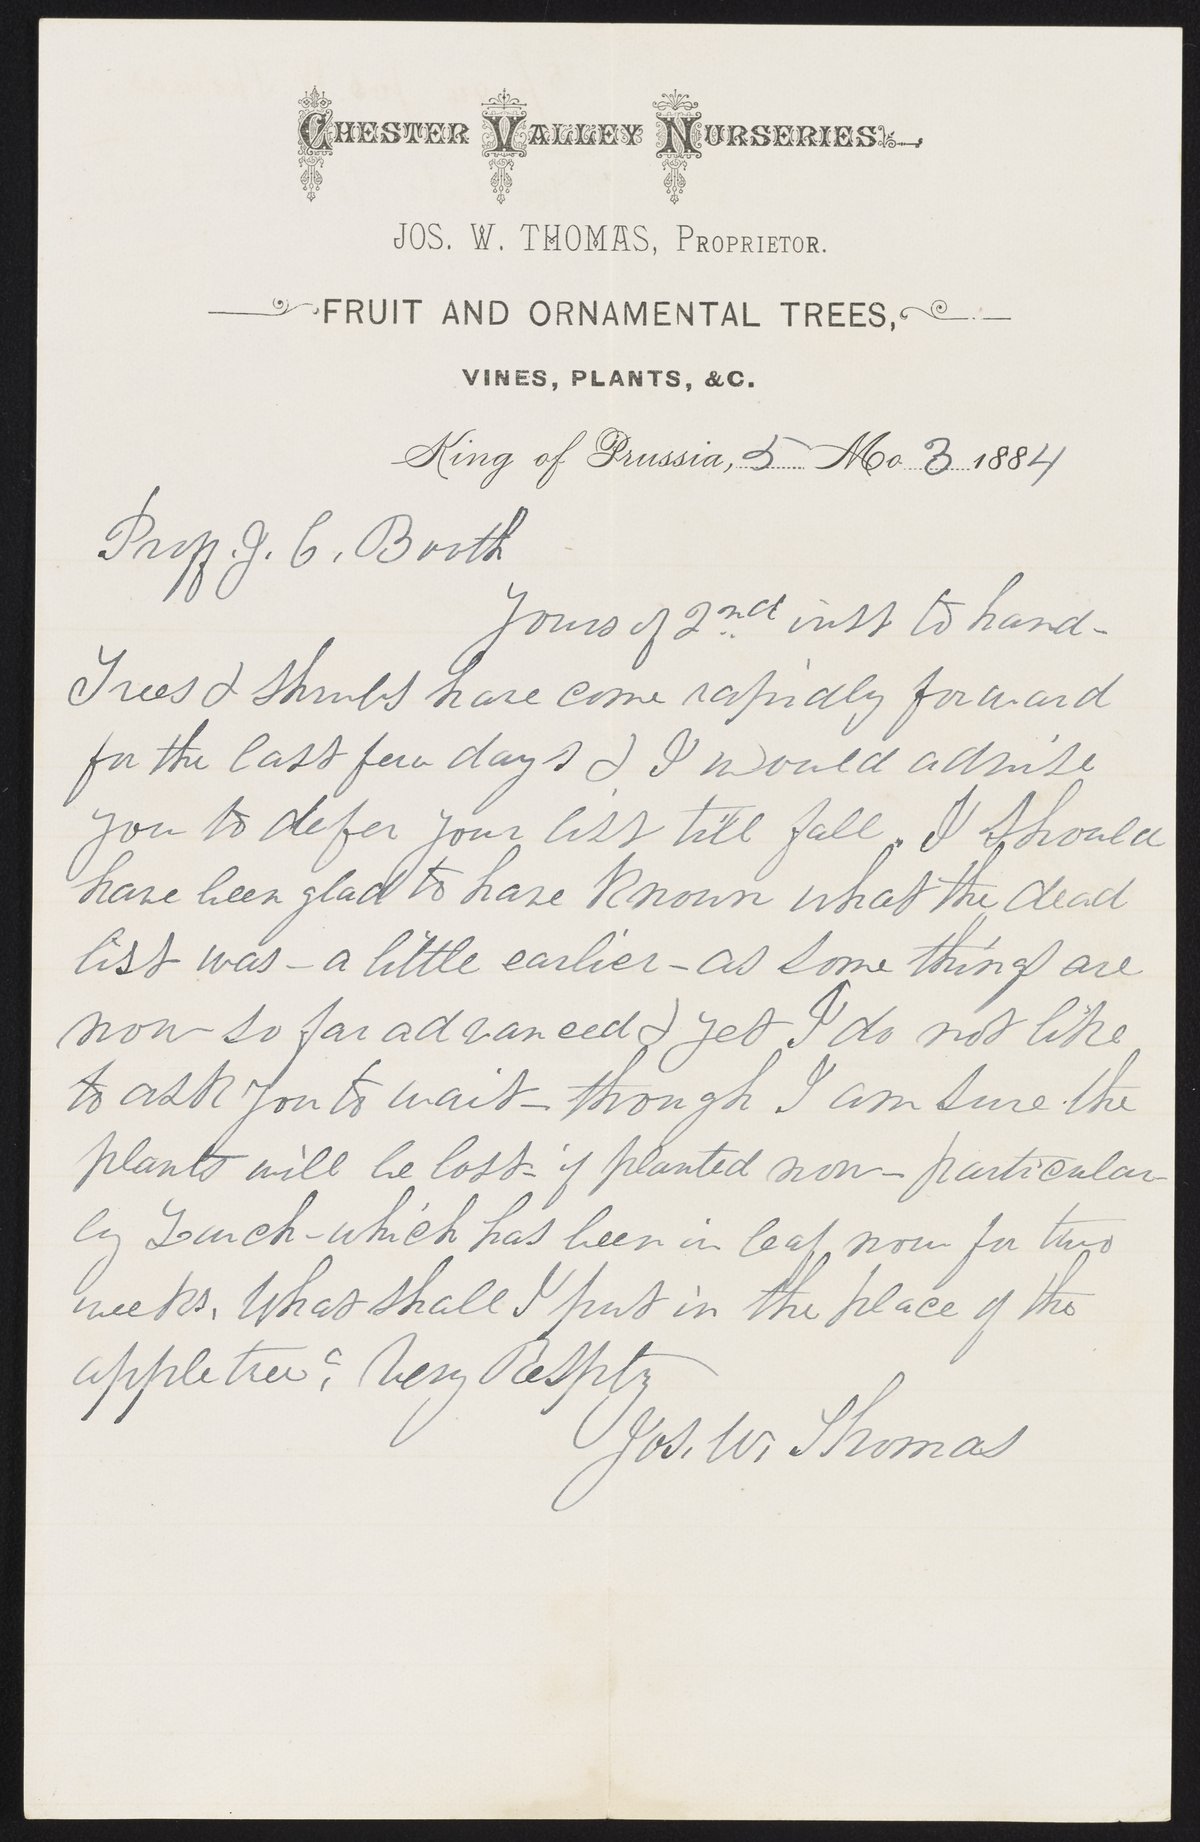 CHESTER VALLEY NURSERIES.
JOS. W. THOMAS, PROPRIETOR.
FRUIT AND ORNAMENTAL TREES,
VINES, PLANTS, &C.
King of Prussia, 5 Mo 3 1884
Prof. J. C. Booth
Yours of 2nd inst to hand-
Trees & Shrubs have come rapidly forward
for the last few days & I would advise
you to defer your list till fall. I should
have been glad to have known what the dead
list was - a little earlier - as some things are
now so far advanced & yet I do not like
to ask you to wait - though I am sure the
plants will be lost - if planted now - particular-
ly Larch - which has been in leaf now for two
weeks. What shall I put in the place of the
apple tree? Very Respty
Jos. W. Thomas